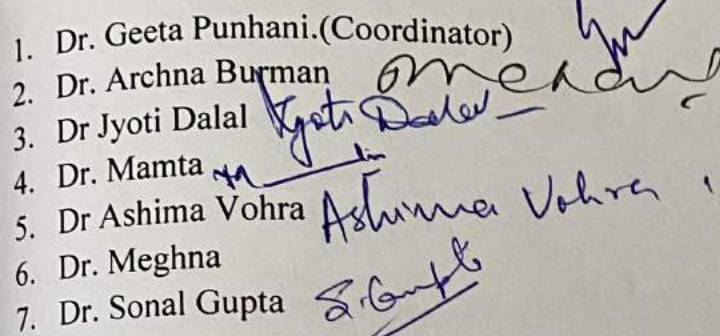 1. Dr. Geeta Punhani.(Coordinator)
2. Dr. Archna Burman
3. Dr Jyoti Dalal Jyoti Dalal
4. Dr. Mamta
5. Dr Ashima Vohra Ashima Vohra
6. Dr. Meghna
7. Dr. Sonal Gupta S.Gupta